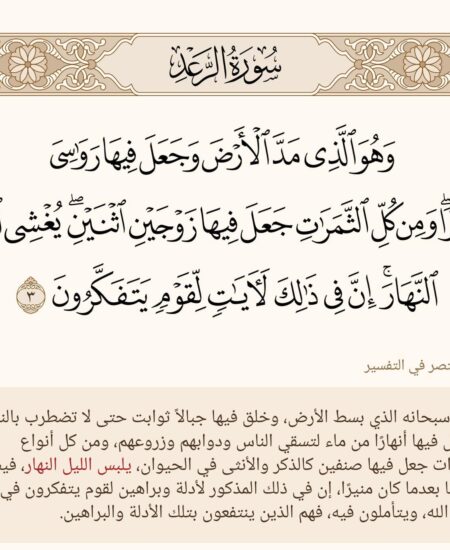 سُورَةُ الرَّعْدِ
وَهُوَ الَّذِى مَدَّ الْأَرْضَ وَجَعَلَ فِيهَا رَوَٰسِىَ
وَمِن كُلِّ الثَّمَرَٰتِ جَعَلَ فِيهَا زَوْجَيْنِ اثْنَيْنِ ۖ يُغْشِى
النَّهَارَ ۚ إِنَّ فِى ذَٰلِكَ لَـَٔايَـٰتٍ لِّقَوْمٍ يَتَفَكَّرُونَ ٣
في التفسير
سبحانه الذي بسط الأرض، وخلق فيها جبالاً ثوابت حتى لا تضطرب
فيها أنهارًا من ماء لتسقي الناس ودوابهم وزروعهم، ومن كل أنواع
جعل فيها صنفين كالذكر والأنثى في الحيوان، يلبس الليل النهار،
بعدما كان منيرًا، إن في ذلك المذكور لأدلة وبراهين لقوم يتفكرون في
الله، ويتأملون فيه، فهم الذين ينتفعون بتلك الأدلة والبراهين.